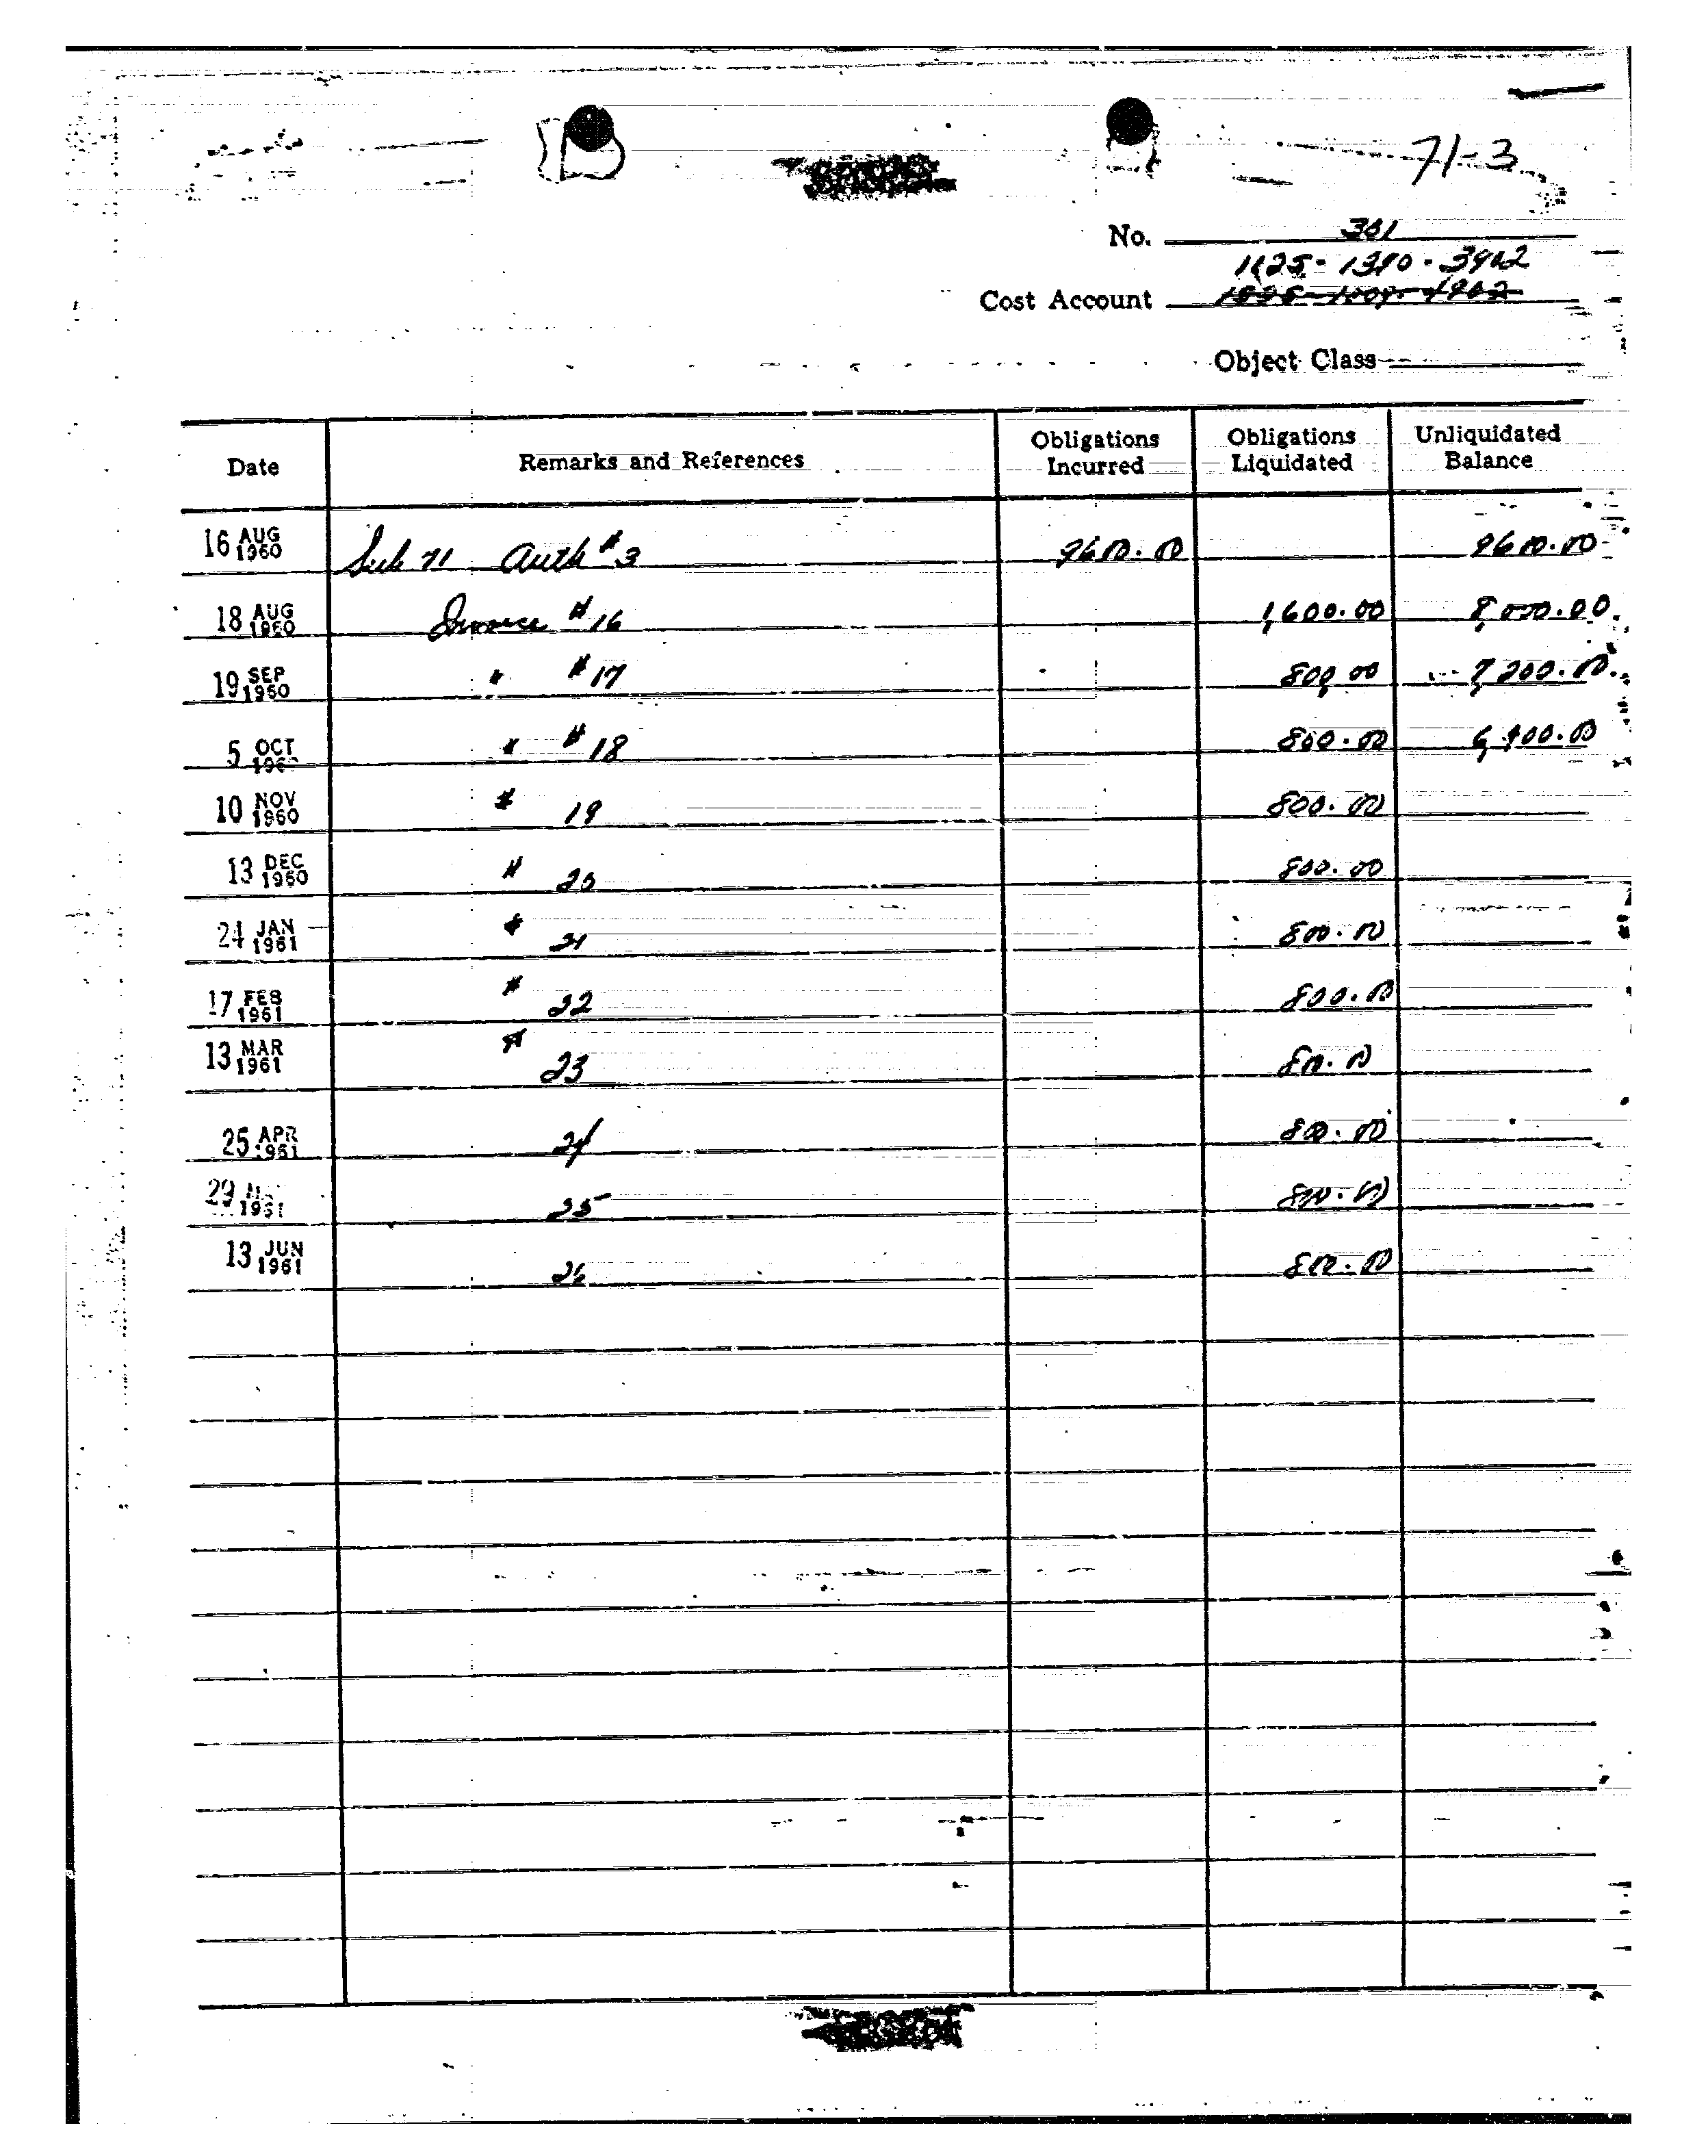 71-3
No. 301
1125-1390-3902
Cost Account
Object Class
Date Remarks and References Obligations Incurred Obligations Liquidated Unliquidated Balance
16 AUG 1960 Sub 71 Auth #3 9600.00 9600.00
18 AUG 1960 Invoice #16 1,600.00 8,000.00
19 SEP 1960 " #17 800.00 7,200.00
5 OCT 1960 " #18 800.00 6,400.00
10 NOV 1960 # 19 800.00
13 DEC 1960 # 20 800.00
24 JAN 1961 # 21 800.00
17 FEB 1961 # 22 800.00
13 MAR 1961 # 23 800.00
25 APR 1961 24 800.00
29 1961 25 800.00
13 JUN 1961 26 800.00